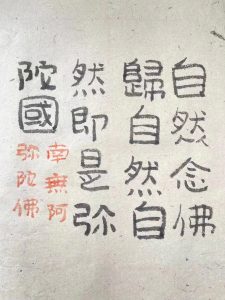 自然念佛
歸自然自
然即是弥
陀國
南無阿
弥陀佛